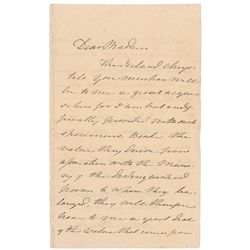 Dear Madam
The Iceland Chrys-
tals you mention will
be to me a great acquis
as here for I am but indif
ferently provided with such
specimens. Besides the
value they derive from
association with the Memo-
ry of the distinguished
person to whom they be
longed, they will therefore
have to me a great deal
of the value that comes from